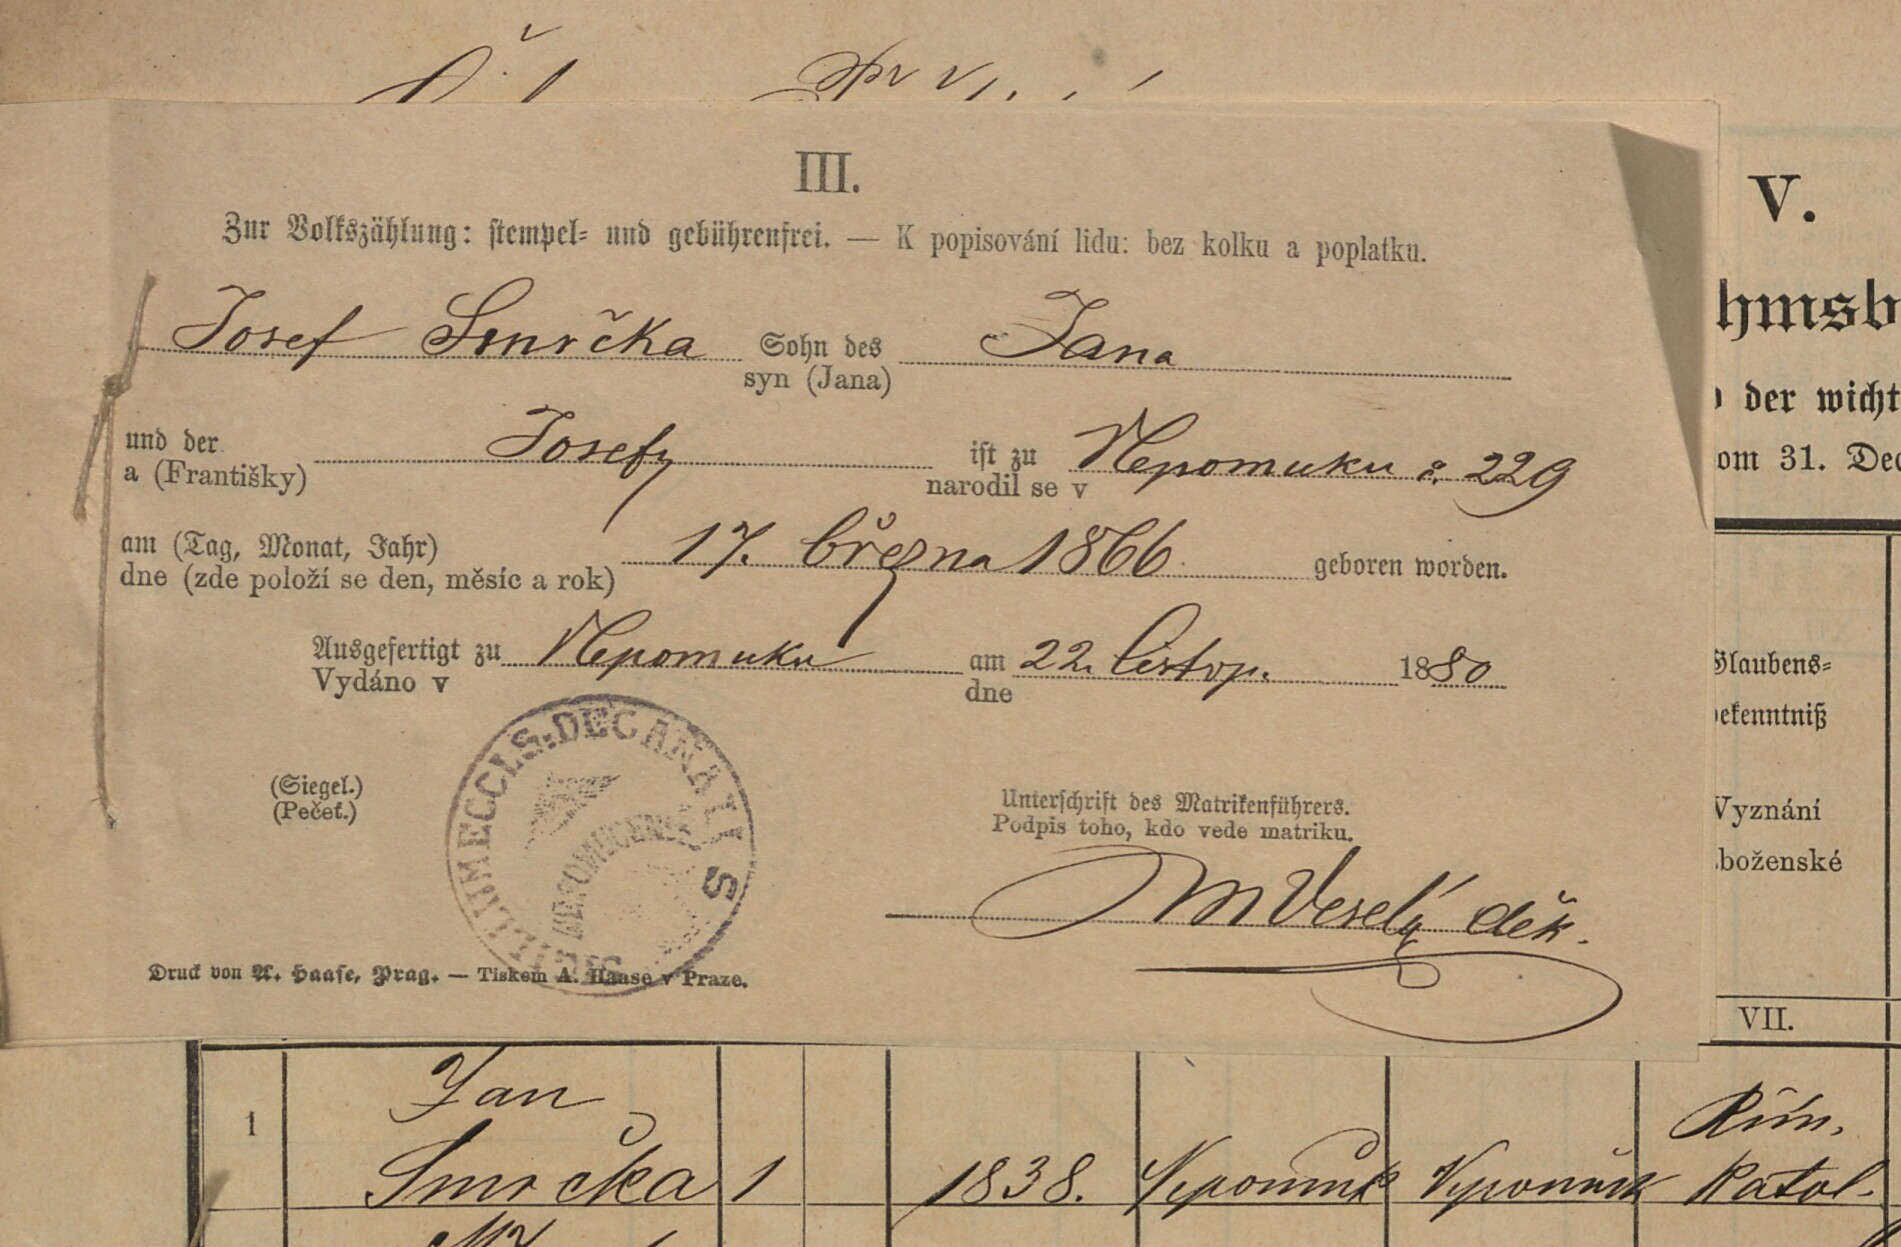 III.
V.
Zur Volkszählung: stempel- und gebührenfrei. — K popisování lidu: bez kolku a poplatku.
hmsb
Josef Smrčka Sohn des Jana
syn (Jana)
der wicht
und der Josefy ist zu Nepomuku č. 229
a (Františky) narodil se v
om 31. Dec
am (Tag, Monat, Jahr) 17. března 1866 geboren worden.
dne (zde položí se den, měsíc a rok)
Ausgefertigt zu Nepomuku am 22. listop. 1880
Vydáno v dne
Glaubens-
bekenntniß
SIGILLUM ECCLS. DECANALIS
NEPOMUCENS
(Siegel.)
(Pečeť.)
Unterschrift des Matrikenführers.
Podpis toho, kdo vede matriku.
Vyznání
boženské
M Veselý děk.
Druck von A. Haase, Prag. — Tiskem A. Haase v Praze.
VII.
1 Jan
Smrčka 1 1838. Nepomuk Nepomuk Řím.
Katol.